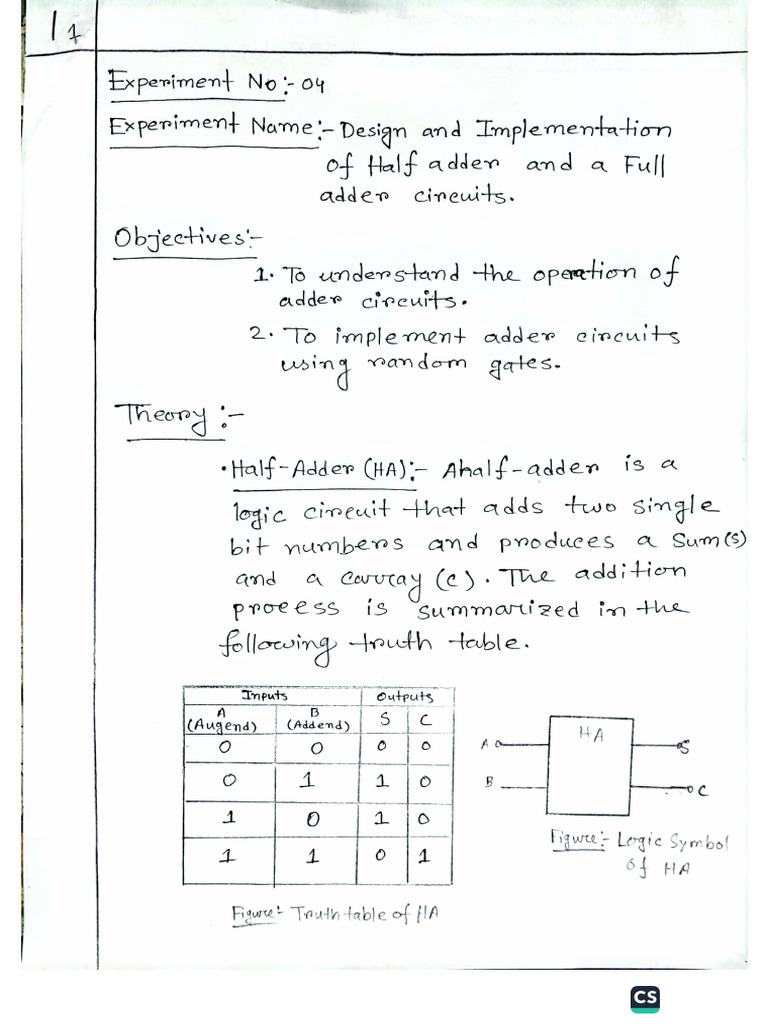 1 1
Experiment No:- 04
Experiment Name:- Design and Implementation
of Half adder and a Full
adder circuits.
Objectives:-
1. To understand the operation of
adder circuits.
2. To implement adder circuits
using random gates.
Theory:-
• Half-Adder (HA):- Ahalf-adder is a
logic circuit that adds two single
bit numbers and produces a Sum(s)
and a carray (c). The addition
process is summarized in the
following truth table.
Inputs Outputs
A B S C
(Augend) (Addend)
0 0 0 0
0 1 1 0
1 0 1 0
1 1 0 1
HA
A S
B C
Figure:- Logic Symbol
of HA
Figure:- Truth table of HA
CS